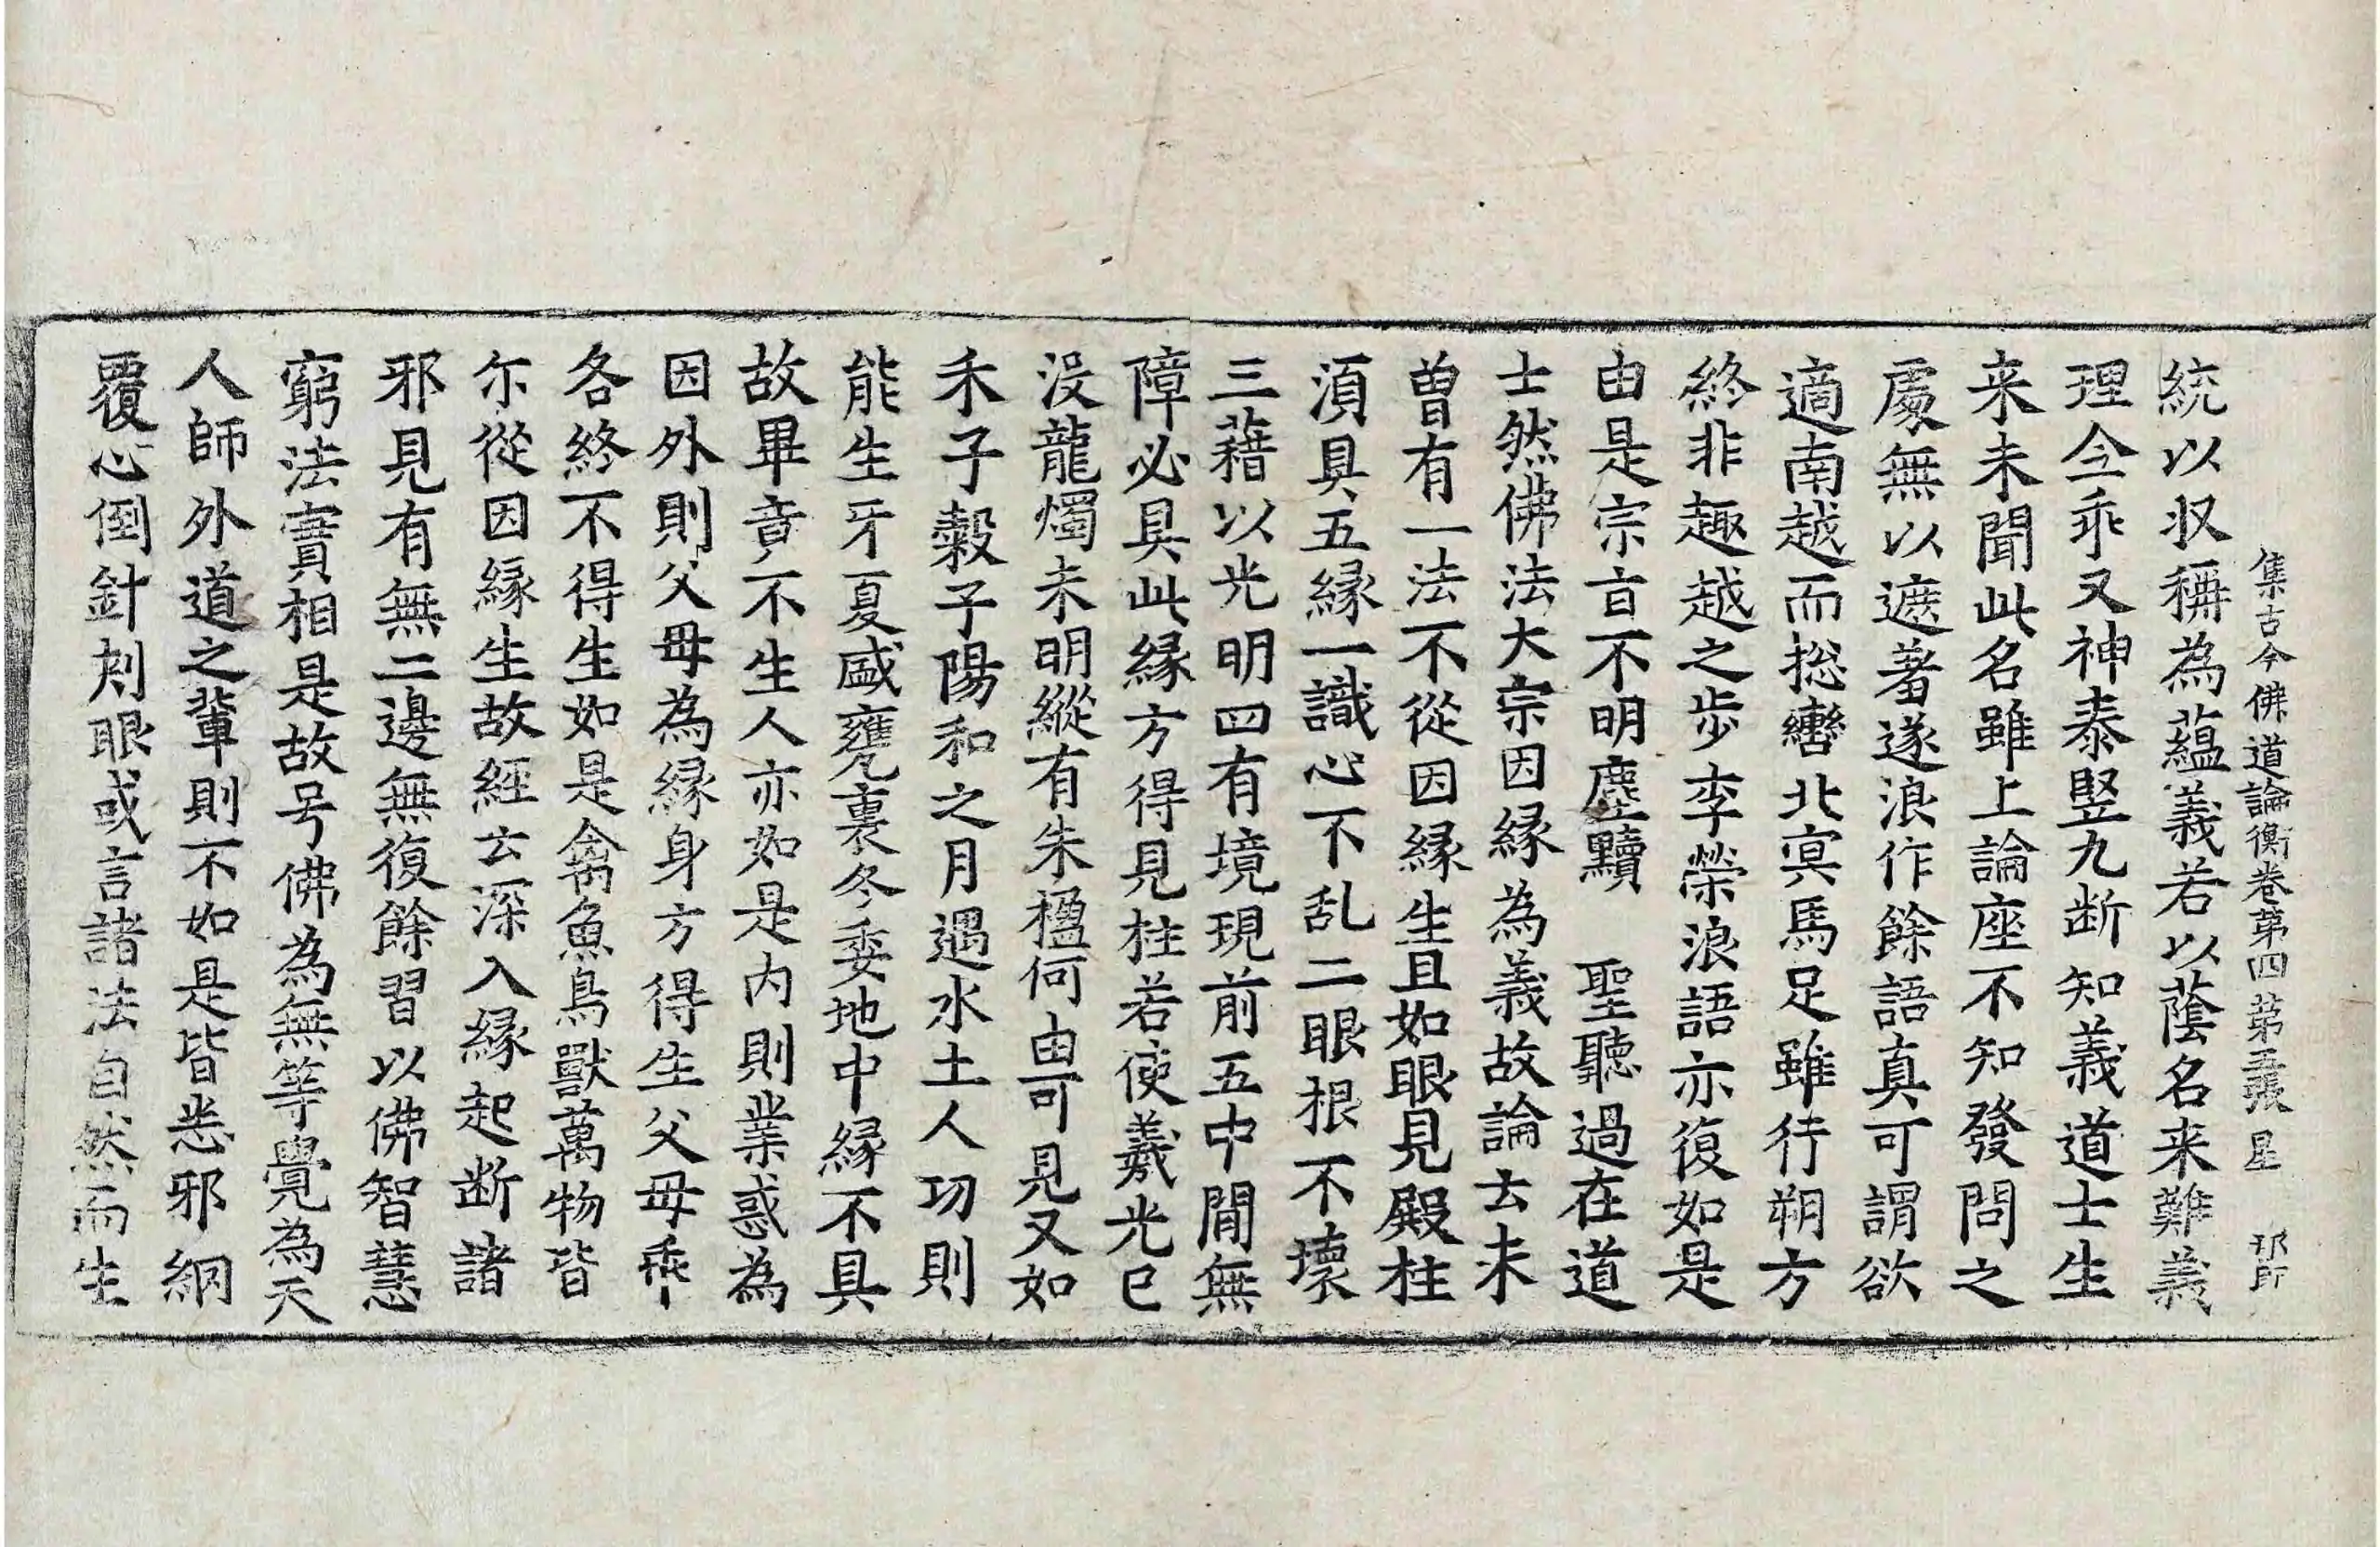 集古今佛道論衡卷第四 第五張 星
統以収稱為蘊義若以蔭名来難義
理今乖又神泰竪九断知義道士生
来未聞此名雖上論座不知發問之
處無以遮著遂浪作餘語真可謂欲
適南越而捴轡北㝠馬足雖行朔方
終非趣越之步李榮浪語亦復如是
由是宗旨不明塵黷 聖聽過在道
士然佛法大宗因縁為義故論云未
曽有一法不從因縁生且如眼見殿柱
湏具五縁一識心不乱二眼根不壞
三藉以光明四有境現前五中間無
障必具此縁方得見柱若使羲光已
沒龍燭未明縱有朱楹何由可見又如
禾子糓子陽和之月遇水土人功則
能生牙夏盛甕裏冬委地中縁不具
故畢竟不生人亦如是内則業惑為
因外則父母為縁身方得生父母乖
各終不得生如是禽魚鳥獸萬物皆
尒從因縁生故經云深入縁起断諸
邪見有無二邊無復餘習以佛智慧
窮法實相是故号佛為無等覺為天
人師外道之輩則不如是皆悉邪網
覆心倒針刺眼或言諸法自然而生